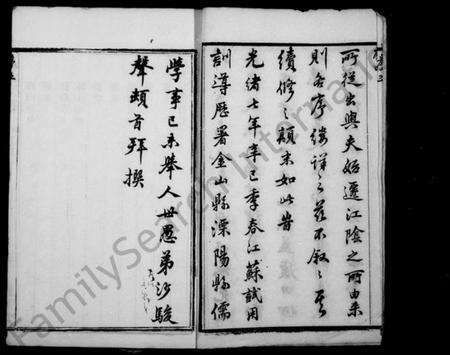 所從出與夫始遷江陰之所由來
則各序縷詳之茲不敘之至
續修之顛末如此昔
光緒七年辛巳季春江蘇試用
訓導歷署金山縣溧陽縣儒
學事己未舉人世愚弟沙駿
聲頓首拜撰
FamilySearch International